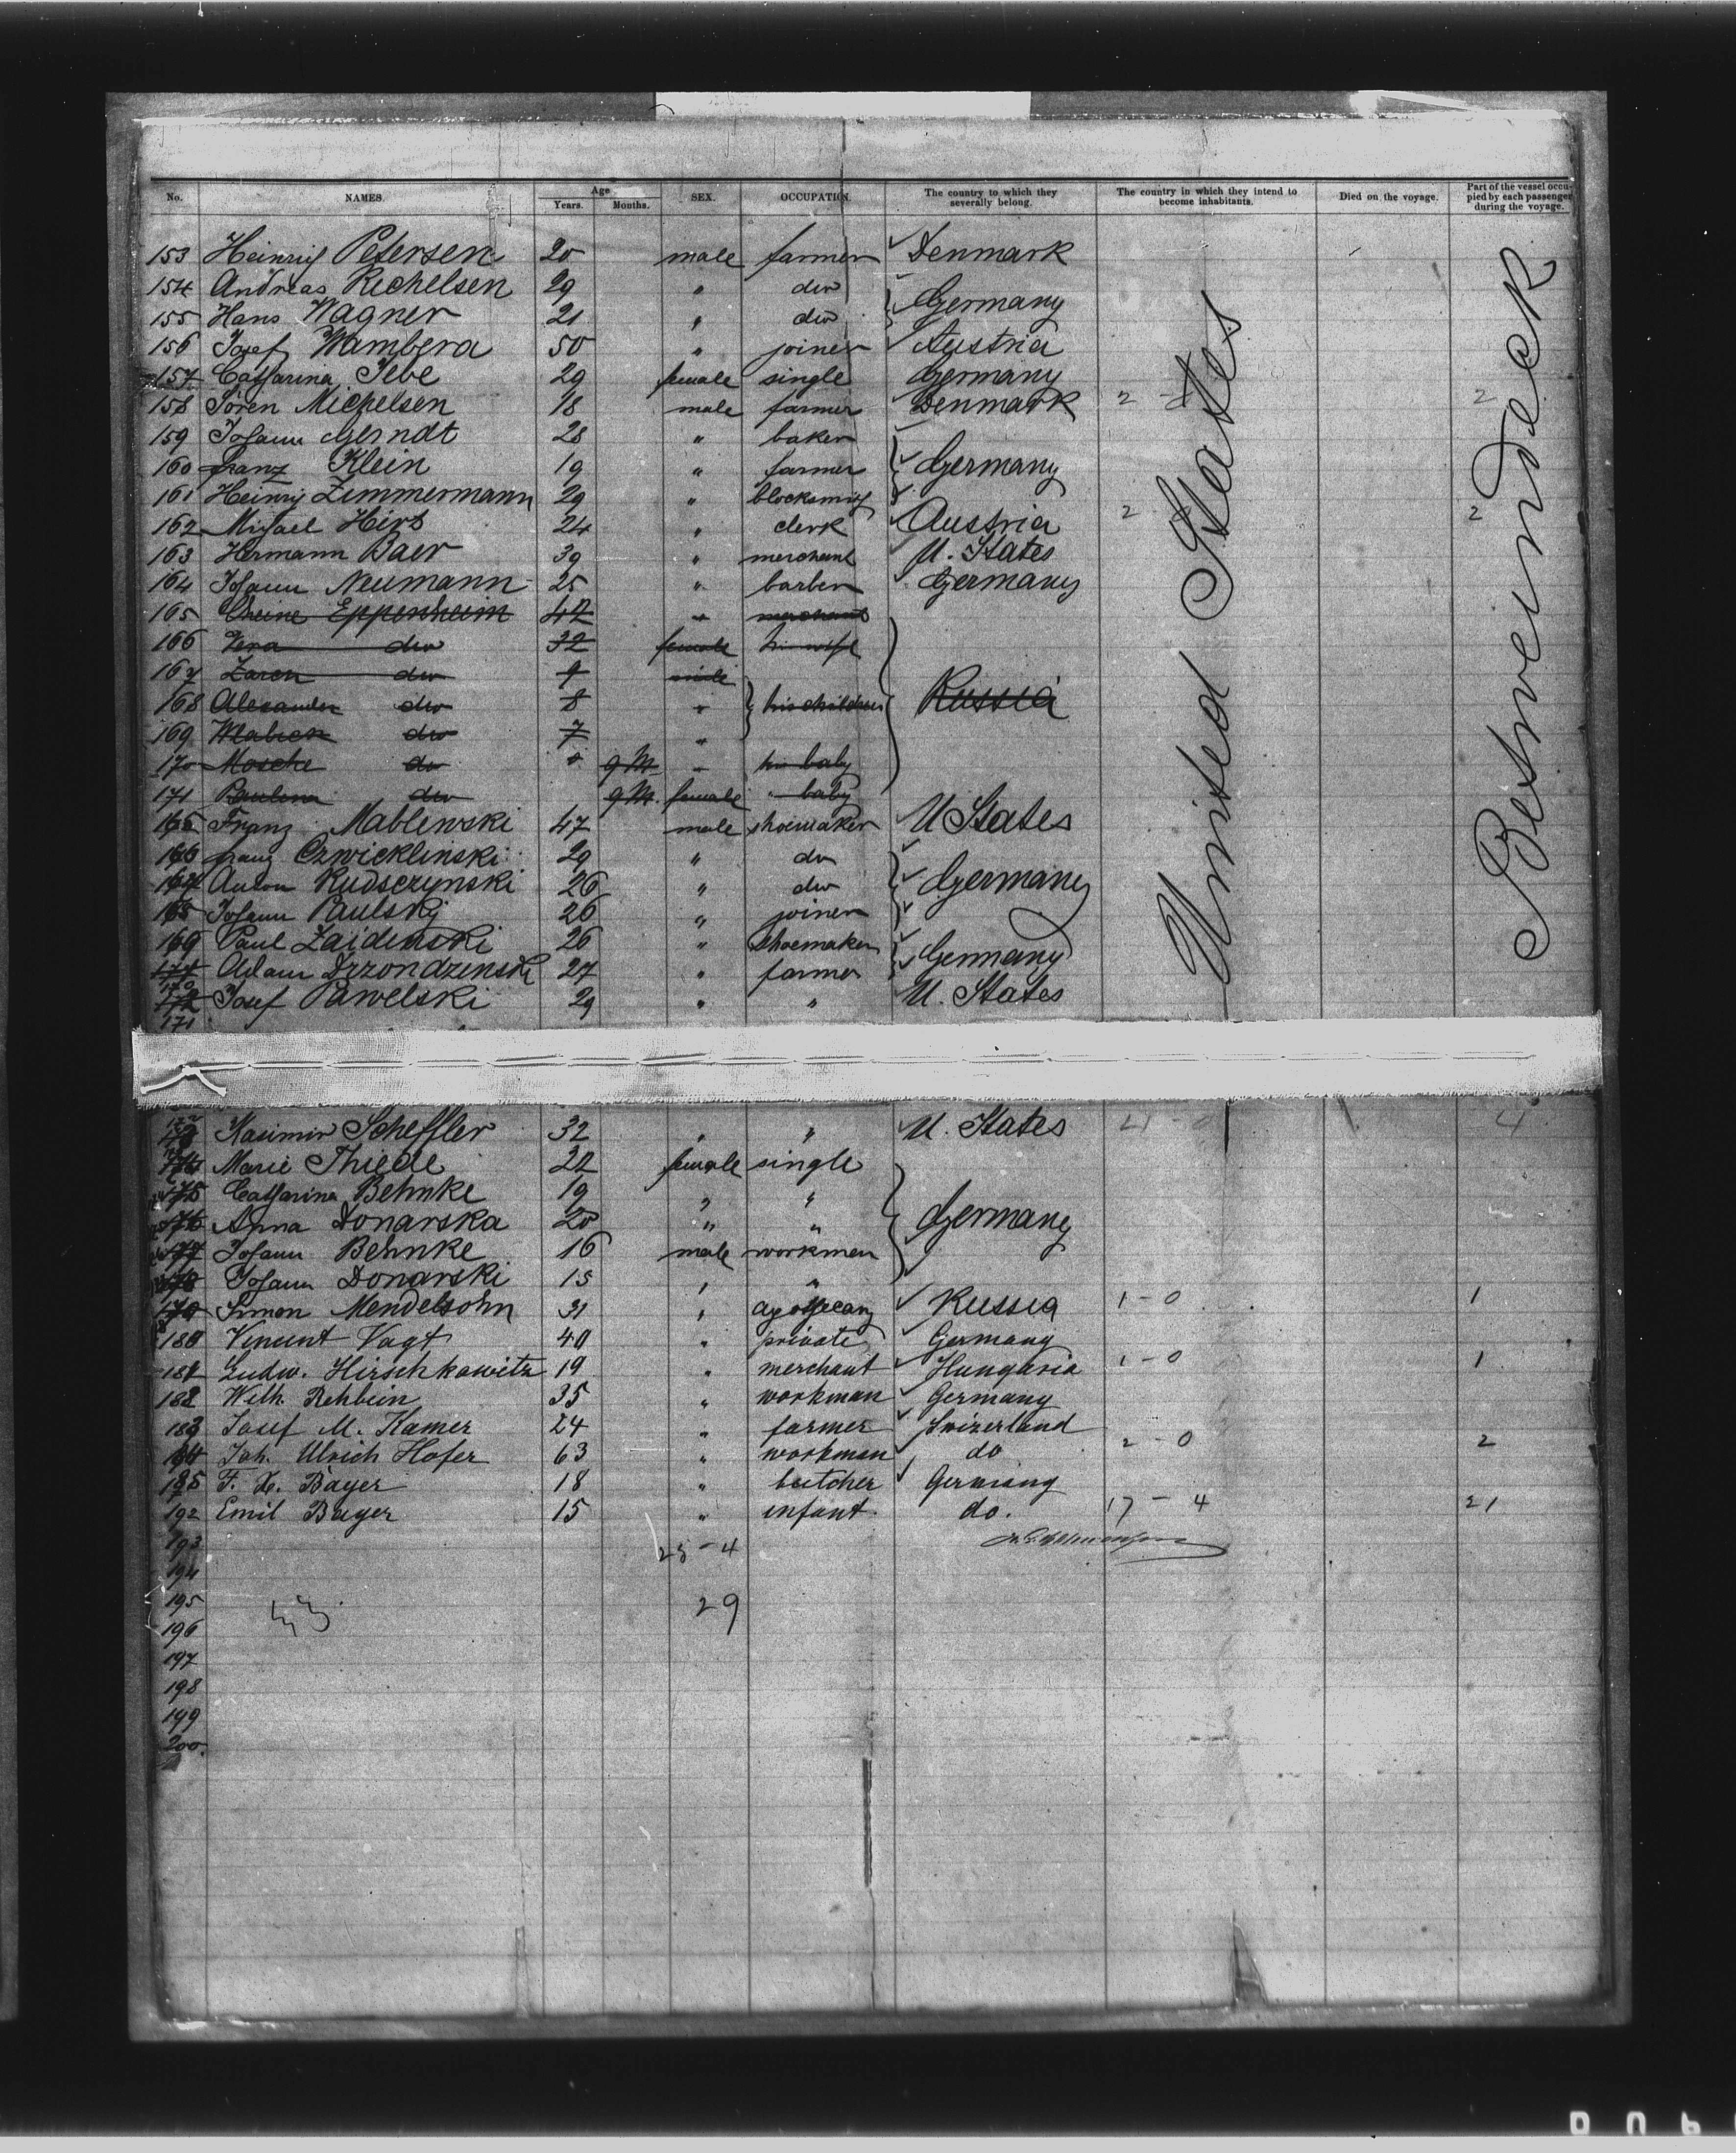 No. NAMES. Age Years. Months. SEX. OCCUPATION. The country to which they severally belong. The country in which they intend to become inhabitants. Died on the voyage. Part of the vessel occupied by each passenger during the voyage.
United States
Betweendeck
153 Heinrich Petersen 20 male farmer Denmark
154 Andreas Rechelsen 29 " do
155 Hans Wagner 21 " do Germany
156 Josef Wambera 50 " joiner Austria
157 Catharina Iebe 29 female single Germany
158 Sören Michelsen 18 male farmer Denmark 2 2
159 Johann Gerndt 28 " baker
160 Franz Klein 19 " farmer Germany
161 Heinrich Zimmermann 29 " blocksmith
162 Michael Hirs 24 " clerk Austria 2 2
163 Hermann Baer 39 " merchant U. States
164 Johann Neumann 25 " barber Germany
165 Eppenheim 42 " merchant
166 Vera do 32 female his wife
167 Zaren do 9 male
168 Alexander do 8 " his children Russia
169 do 7 "
170 Mosche do 9 M. " baby
171 Paulina do 9 M. female " baby
165 Franz Mablewski 47 male shoemaker U States
166 Franz Czwicklinski 29 " do
167 Anton Rudsczynski 26 " do Germany
168 Johann Paulsky 26 " joiner
169 Paul Zaidinski 26 " Shoemaker
170 Adam Drzondzinski 27 " farmer Germany
172 Josef Pawelski 29 " " U. States
171
Kasimir Scheffler 32 " " U. States 4 - 0 4
174 Marie Thiede 22 female single
175 Catharina Behnke 19 " "
176 Anna Donarska 20 " " Germany
177 Johann Behnke 16 male workman
178 Johann Donarski 15 " "
179 Simon Mendelsohn 31 " apothecary Russia 1 - 0 1
180 Vincent Vagt 40 " private Germany
181 Ludw. Hirschkowitz 19 " merchant Hungaria 1 - 0 1
182 Wilh. Rehbein 35 " workman Germany
183 Josef M. Kamer 24 " farmer Swizerland
184 Joh. Ulrich Hofer 63 " workman do 2 - 0 2
185 F. X. Bayer 18 " butcher Germany
192 Emil Bayer 15 " infant do. 17 - 4 21
193 25 - 4
194
195 29
196
197
198
199
200.